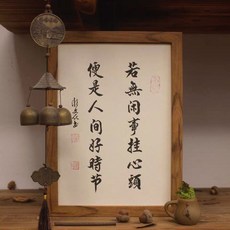 若無闲事挂心頭
便是人间好時节